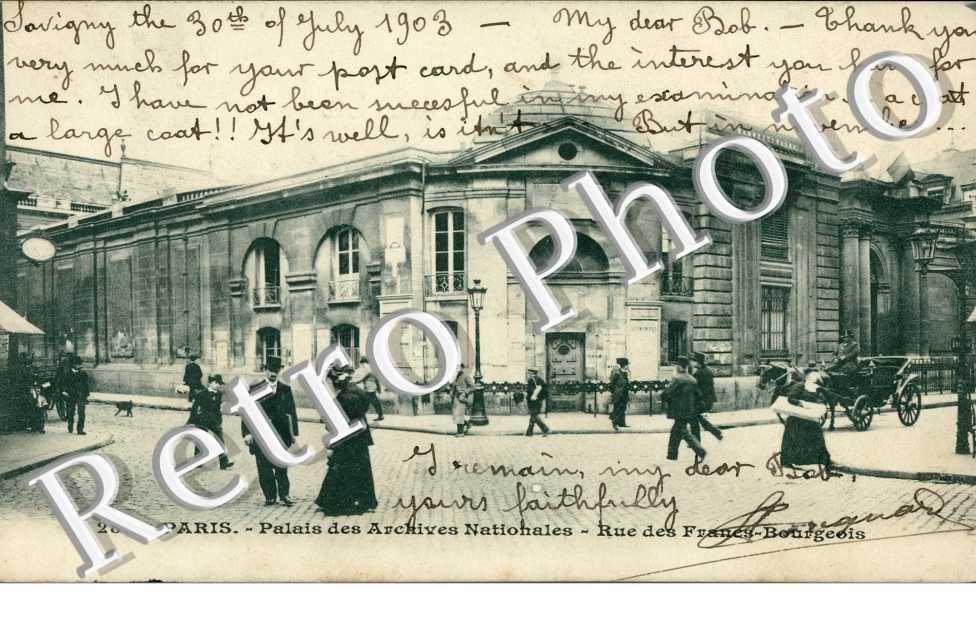 Savigny the 30th of July 1903 — My dear Bob. — Thank you
very much for your post card, and the interest you for
me. I have not been succesful in my examination a coat
a large coat!! It's well, is itn't But in november...
Retro Photo
I remain, my dear Bob,
yours faithfully
PARIS. - Palais des Archives Nationales - Rue des Francs-Bourgeois